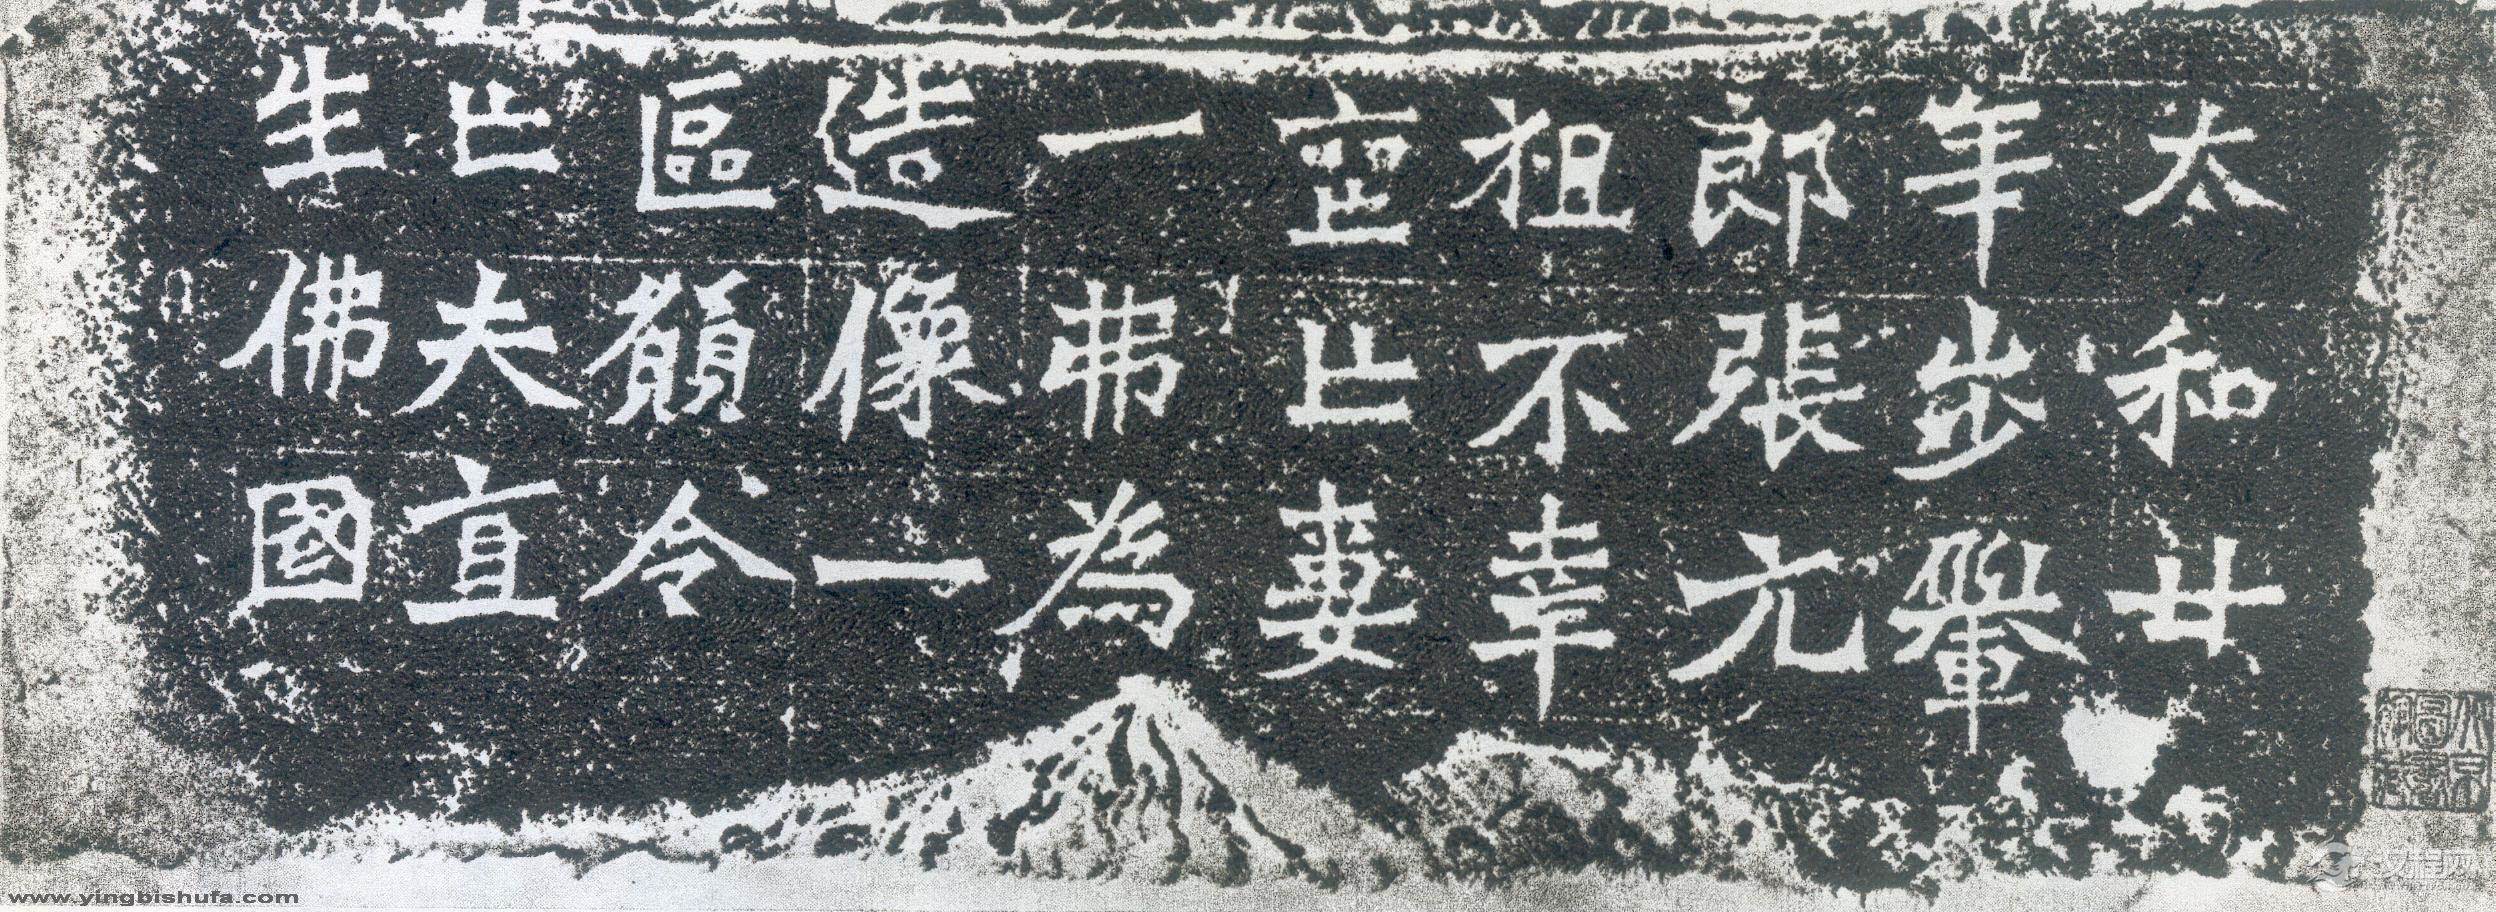 太和廿
年步轝
郎張元
祖不幸
喪亡妻
一弗為
造像一
區願令
亡夫直
生佛國
www.yingbishufa.com
汉程网